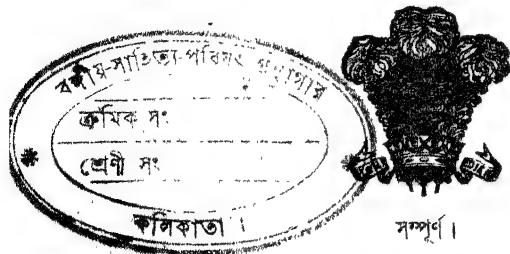 বঙ্গীয়-সাহিত্য-পরিষৎ গ্রন্থাগার
ক্রমিক সং
শ্রেণী সং
কলিকাতা।
সম্পূর্ণ।